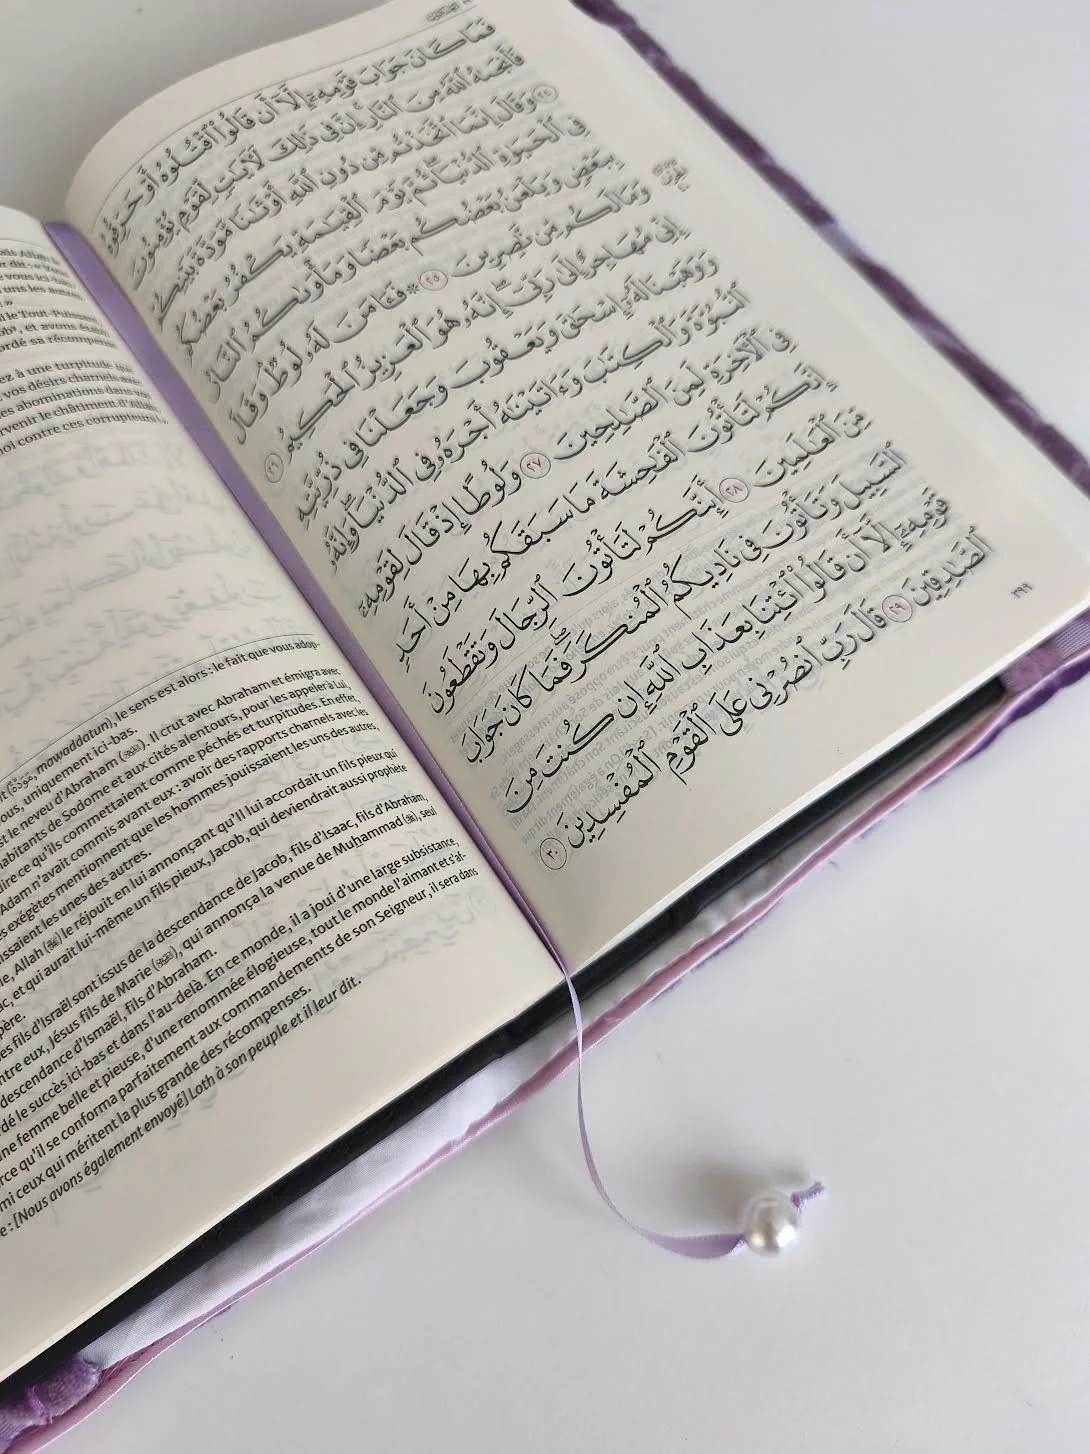 فَمَا كَانَ جَوَابَ قَوْمِهِۦٓ إِلَّآ أَن قَالُوا۟ ٱقْتُلُوهُ أَوْ حَرِّقُوهُ
فَأَنجَىٰهُ ٱللَّهُ مِنَ ٱلنَّارِ ۚ إِنَّ فِى ذَٰلِكَ لَـَٔايَـٰتٍ لِّقَوْمٍ يُؤْمِنُونَ
٢٤ وَقَالَ إِنَّمَا ٱتَّخَذْتُم مِّن دُونِ ٱللَّهِ أَوْثَـٰنًا مَّوَدَّةَ بَيْنِكُمْ
فِى ٱلْحَيَوٰةِ ٱلدُّنْيَا ۖ ثُمَّ يَوْمَ ٱلْقِيَـٰمَةِ يَكْفُرُ بَعْضُكُم
بِبَعْضٍ وَيَلْعَنُ بَعْضُكُم بَعْضًا وَمَأْوَىٰكُمُ ٱلنَّارُ
وَمَا لَكُم مِّن نَّـٰصِرِينَ ٢٥ ۞ فَـَٔامَنَ لَهُۥ لُوطٌ ۘ وَقَالَ
إِنِّى مُهَاجِرٌ إِلَىٰ رَبِّىٓ ۖ إِنَّهُۥ هُوَ ٱلْعَزِيزُ ٱلْحَكِيمُ ٢٦
وَوَهَبْنَا لَهُۥٓ إِسْحَـٰقَ وَيَعْقُوبَ وَجَعَلْنَا فِى ذُرِّيَّتِهِ
ٱلنُّبُوَّةَ وَٱلْكِتَـٰبَ وَءَاتَيْنَـٰهُ أَجْرَهُۥ فِى ٱلدُّنْيَا ۖ وَإِنَّهُۥ
فِى ٱلْـَٔاخِرَةِ لَمِنَ ٱلصَّـٰلِحِينَ ٢٧ وَلُوطًا إِذْ قَالَ لِقَوْمِهِۦٓ
إِنَّكُمْ لَتَأْتُونَ ٱلْفَـٰحِشَةَ مَا سَبَقَكُم بِهَا مِنْ أَحَدٍ
مِّنَ ٱلْعَـٰلَمِينَ ٢٨ أَئِنَّكُمْ لَتَأْتُونَ ٱلرِّجَالَ وَتَقْطَعُونَ
ٱلسَّبِيلَ وَتَأْتُونَ فِى نَادِيكُمُ ٱلْمُنكَرَ ۖ فَمَا كَانَ جَوَابَ
قَوْمِهِۦٓ إِلَّآ أَن قَالُوا۟ ٱئْتِنَا بِعَذَابِ ٱللَّهِ إِن كُنتَ مِنَ
ٱلصَّـٰدِقِينَ ٢٩ قَالَ رَبِّ ٱنصُرْنِى عَلَى ٱلْقَوْمِ ٱلْمُفْسِدِينَ ٣٠
٣٩٩
le Tout-Puissant
, et avons établi
ez à une turpitude que
vos désirs charnels avec
abominations dans vos
le châtiment d'Allah
contre ces corrupteurs
mawaddatun), le sens est alors : le fait que vous adop-
uniquement ici-bas.
le neveu d'Abraham. Il crut avec Abraham et émigra avec
habitants de Sodome et aux cités alentours, pour les appeler à Lui,
ce qu'ils commettaient comme péchés et turpitudes. En effet,
Adam n'avait commis avant eux : avoir des rapports charnels avec les
exégètes mentionnent que les hommes jouissaient les uns des autres,
les unes des autres.
Allah le réjouit en lui annonçant qu'Il lui accordait un fils pieux qui
et qui aurait lui-même un fils pieux, Jacob, qui deviendrait aussi prophète
père.
fils d'Israël sont issus de la descendance de Jacob, fils d'Isaac, fils d'Abraham,
eux, Jésus fils de Marie, qui annonça la venue de Muhammad, seul
descendance d'Ismaël, fils d'Abraham.
le succès ici-bas et dans l'au-delà. En ce monde, il a joui d'une large subsistance,
femme belle et pieuse, d'une renommée élogieuse, tout le monde l'aimant et s'af-
qu'il se conforma parfaitement aux commandements de son Seigneur, il sera dans
ceux qui méritent la plus grande des récompenses.
: [Nous avons également envoyé] Loth à son peuple et il leur dit.